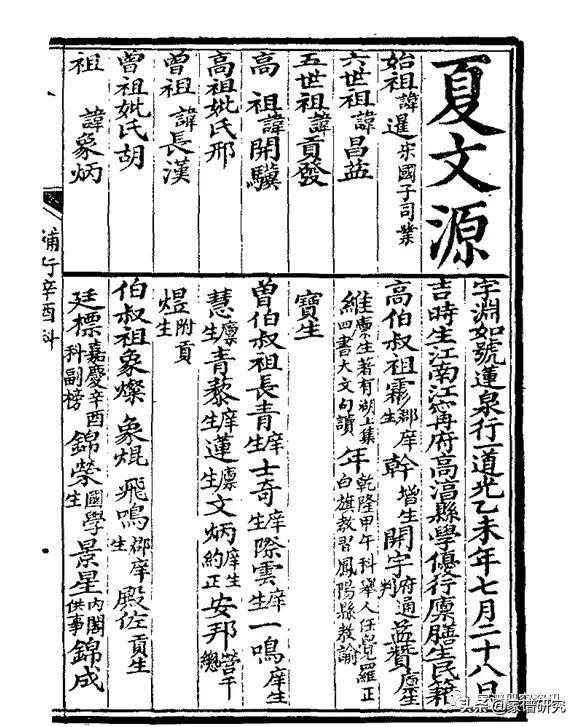 夏文源
始祖諱暹宋國子司業
六世祖諱昌益
五世祖諱貢發
高祖諱開驥
高祖妣氏邢
曾祖諱長漢
曾祖妣氏胡
祖諱象炳
字淵如號蓮泉行一道光乙未年七月二十八日
吉時生江南江甯府高淳縣學優行廩膳生民籍
高伯叔祖霧郡庠生幹增生開宇府通判益贊廩生
維廩生著有湖上集四書大文句讀年乾隆甲午科舉人任覺羅正白旗教習鳳陽縣教諭
寶生
曾伯叔祖長青庠生士奇庠生際雲庠生一鳴庠生
慧廩生青藜庠生蓮廩生文炳庠生約正安邦營千總
煜附貢生
伯叔祖象燦象焜飛鳴郡庠生殿佐貢生
廷標嘉慶辛酉科副榜錦榮國學生景星內閣供事錦成
補行辛酉科
家譜研究